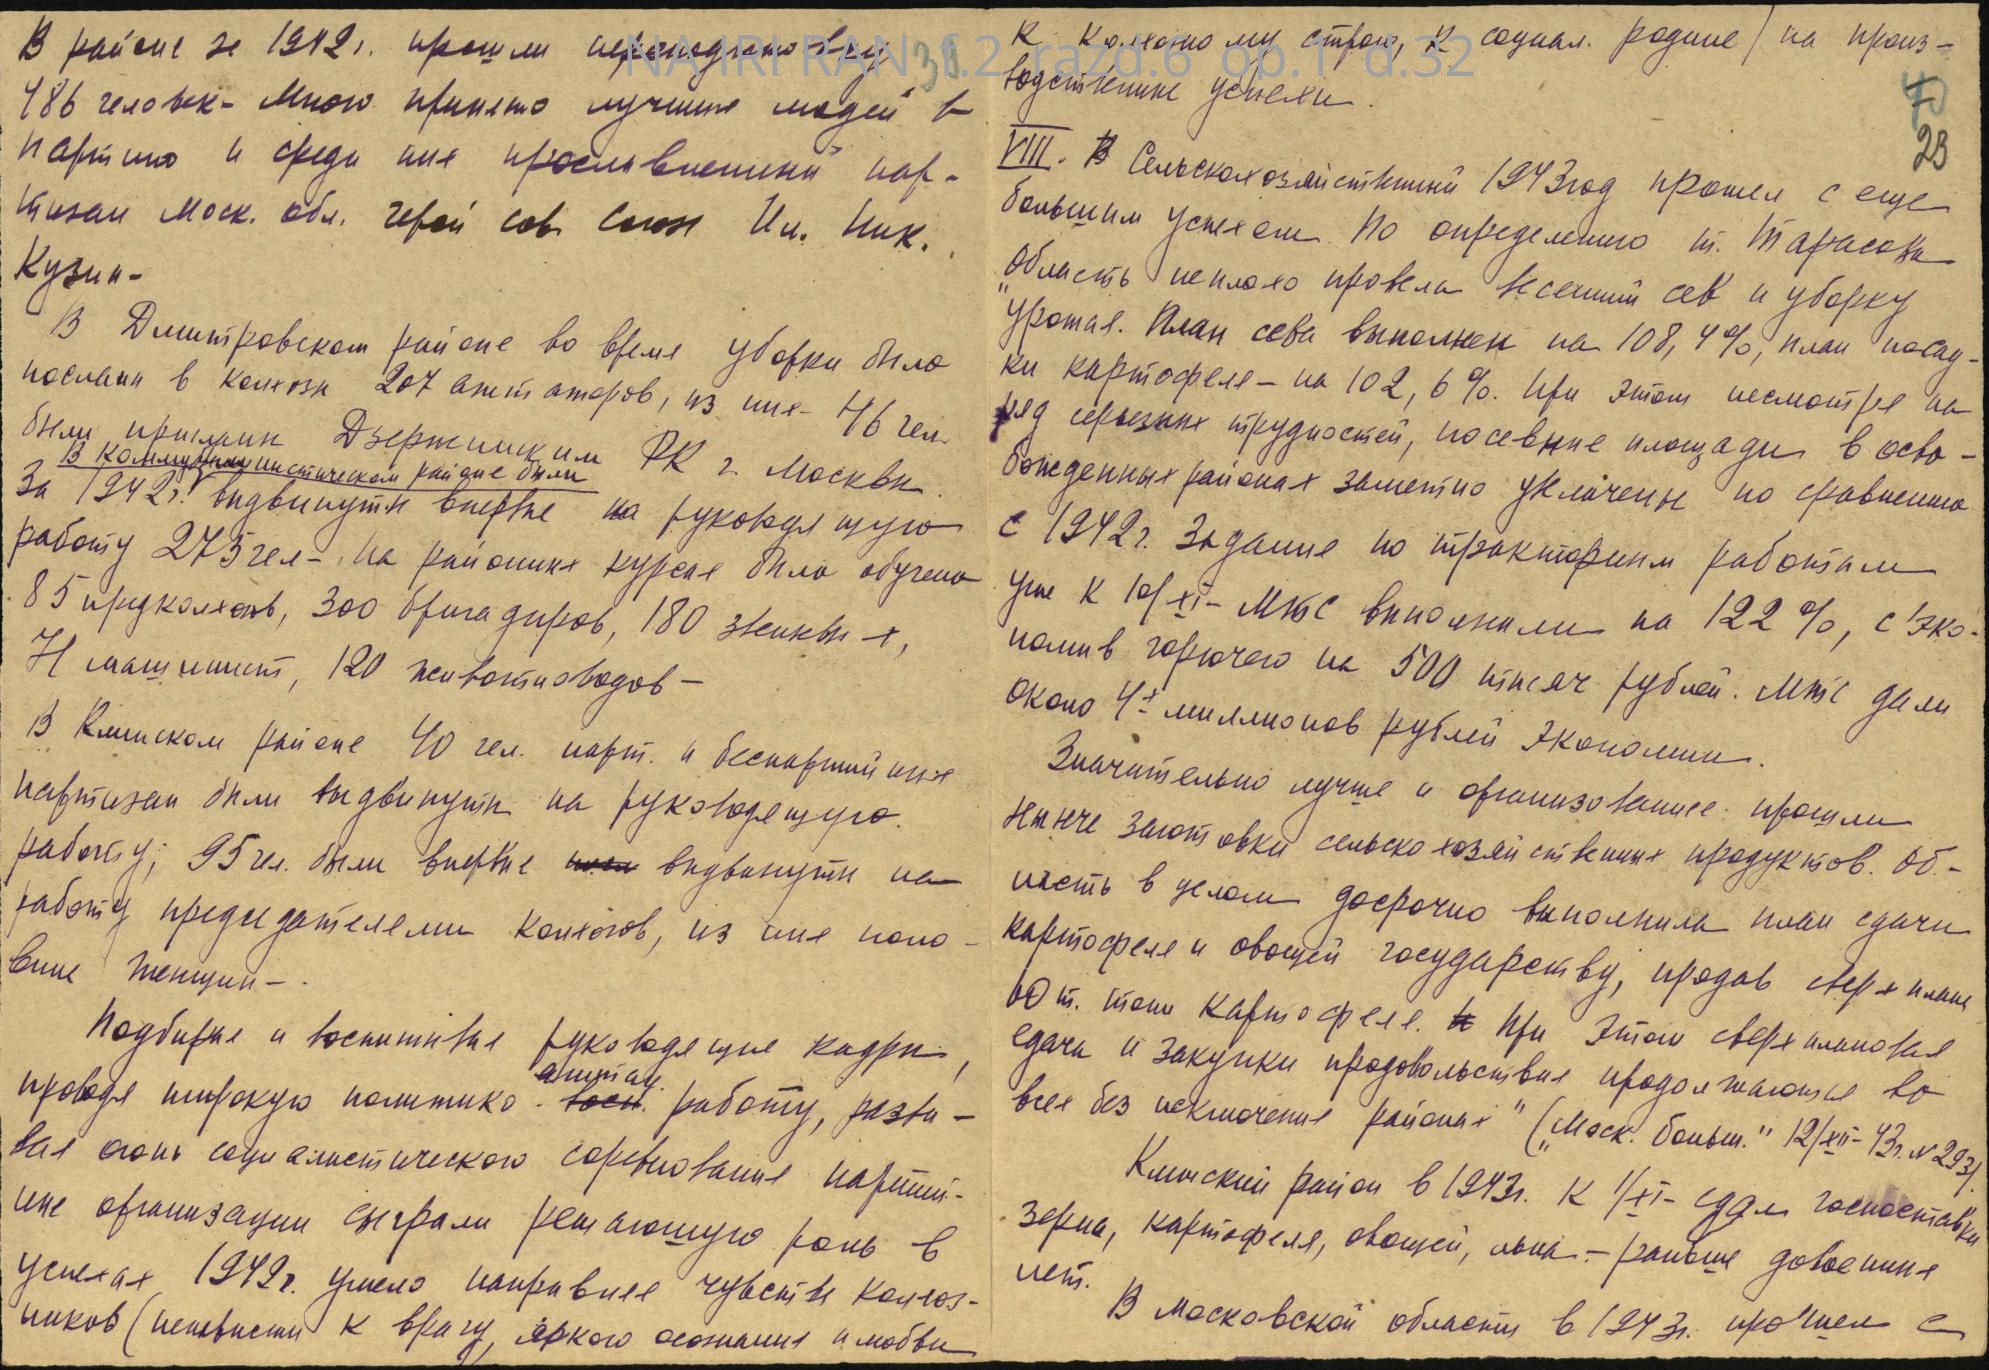 В районе за 1942 г. прошли переподготовку
486 человек - Много принято лучших людей в
партию и среди них прославленный пар-
тизан Моск. обл. герой сов Союз Ил. Ник.
Кузин -
В Дмитровском районе во время уборки было
послано в колхозы 207 агитаторов, из них - 46 чел.
были присланы Дзержинским РК г. Москвы.
В Коммунистическом районе были
За 1942 г. выдвинуты впервые на руководящую
работу 275 чел - На районных курсах было обучено
85 предколхозов, 300 бригадиров, 180 звеньевых,
74 машинист, 120 животноводов -
В Клинском районе 40 чел. парт. и беспартийных
партизан были выдвинуты на руководящую.
работу; 95 чел. были впервые выдвинуты на
работу председателями колхозов, из них поло-
вина женщин -.
Подбирая и воспитывая руководящие кадры,
агитац.
проводя широкую политико - восп. работу, разви-
вая огонь социалистического соревнования партий-
ные организации сыграли решающую роль в
успехах 1942 г. умело направляя чувства колхоз-
ников (ненависти к врагу, яркого осознания и любви
NA IRI RAN f.2 razd.6 op.1 d.32
30
к колхозному строю, к социал. родине) на произ-
водственные успехи.
70
23
VIII. В Сельскохозяйственный 1943 год прошел с еще
большим успехом. По определению т. Тарасова
"Область неплохо провела весенний сев и уборку
урожая. План сева выполнен на 108,4%, план посад-
ки картофеля - на 102,6%. При этом несмотря на
ряд серьезных трудностей, посевные площади в осво-
божденных районах заметно увеличены по сравнению
с 1942 г. Задание по тракторным работам
уже к 10/XI - МТС выполнили на 122%, с эко-
номив горючего на 500 тысяч рублей. МТС дали
около 4х миллионов рублей экономии.
Значительно лучше и организованнее прошли
нынче заготовки сельскохозяйственных продуктов. Об-
ласть в целом досрочно выполнила план сдачи
картофеля и овощей государству, продав сверх плана
10 т. тонн картофеля. При этом сверхплановая
сдача и закупки продовольствия продолжаются во
всех без исключения районах" ("Моск. больш." 12/XII-43 г. N 293).
Клинский район в 1943 г. к 1/XI - сдал госпоставки
зерна, картофеля, овощей, льна. - раньше довоенных
лет.
В Московской области в 1943 г. прошел с